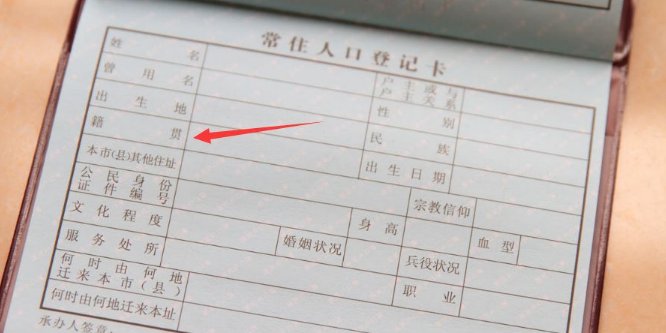 常住人口登记卡
姓名 户主或与户主关系
曾用名 性别
出生地 民族
籍贯 出生日期
本市(县)其他住址
公民身份证件编号 宗教信仰
文化程度 身高 血型
服务处所 婚姻状况 兵役状况
何时由何地迁来本市(县) 职业
何时由何地迁来本址
承办人签章: